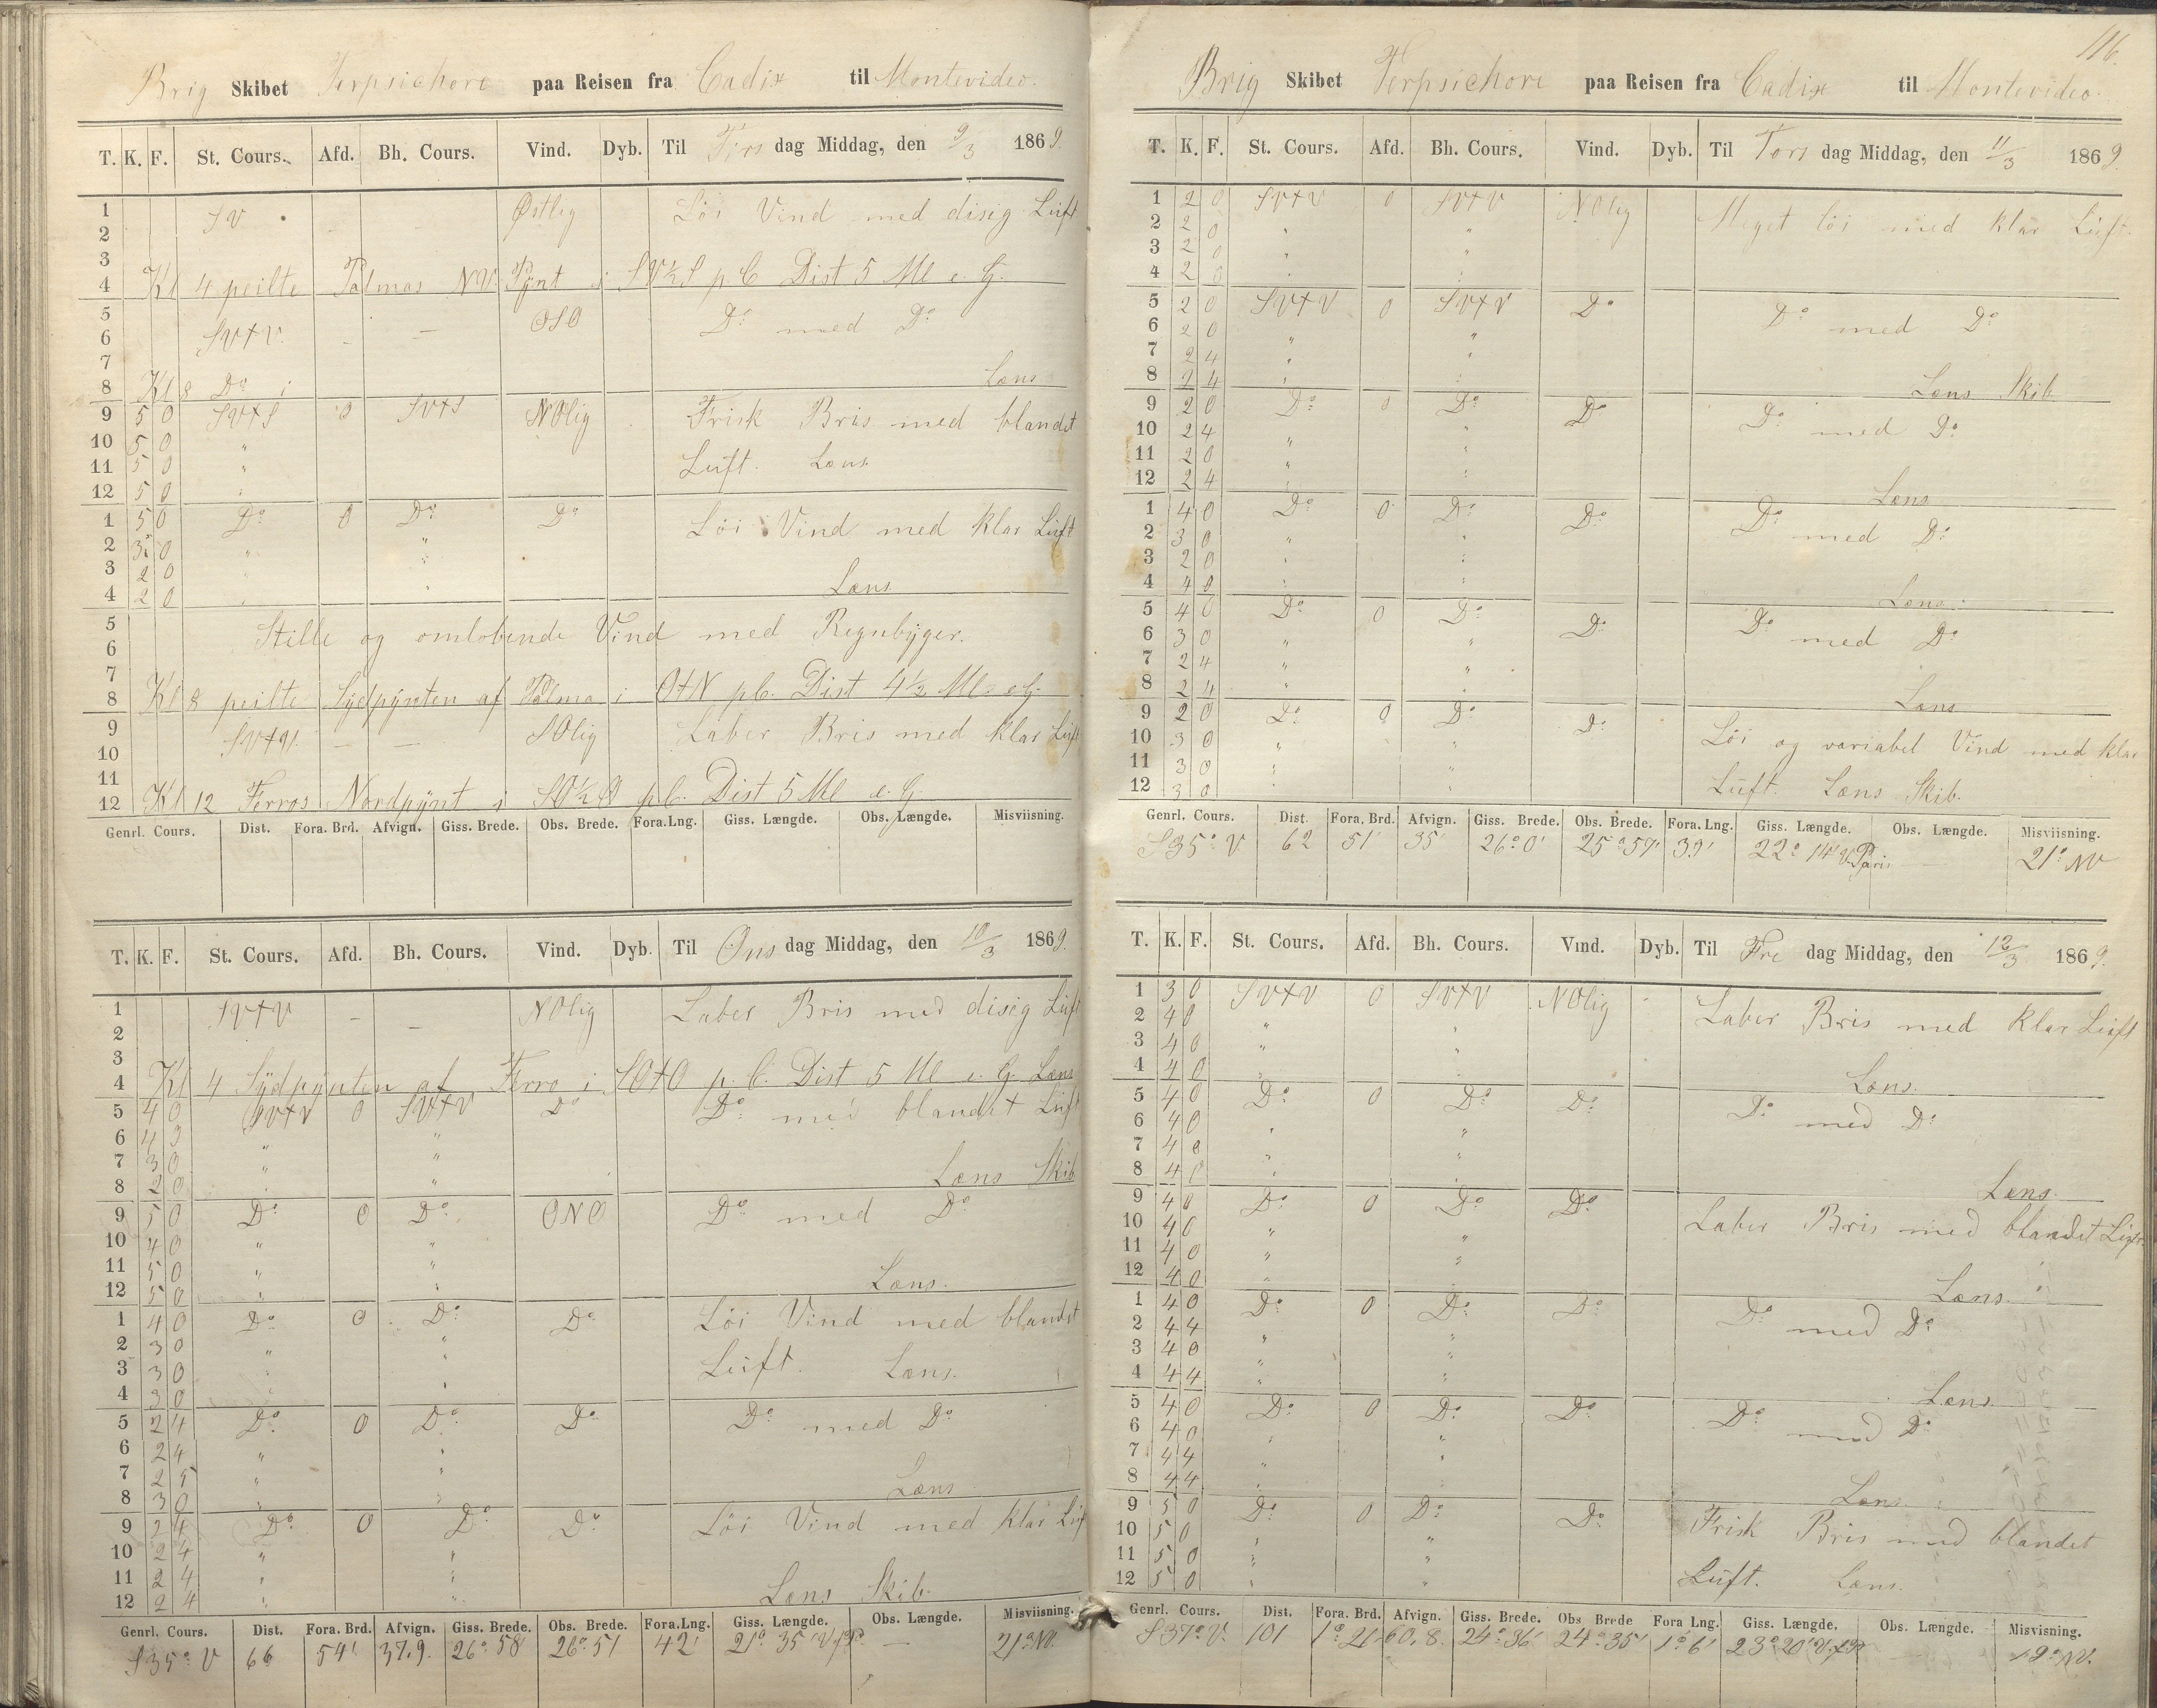 Brig Skibet Terpsichore paa Reisen fra Cadix til Montevideo.
T. K. F. St. Cours. Afd. Bh. Cours. Vind. Dyb. Til Tirs dag Middag, den 9/3 1869.
1 SV . Østlig Löi Vind med disig Luft
2
3
4 Kl 4 peilte Palmas NV. Pÿnt i SV½S p.C. Dist 5 Ml e. G.
5 OSO Do med Do
6 SVtV. - -
7
8 Kl 8 Do i Læns
9 5 0 SVtS 0 SVtS NOlig Frisk Bris med blandet
10 5 0 "
11 5 0 " Luft. Læns.
12 5 0 "
1 5 0 Do 0 Do Do Löi Vind med klar Luft
2 3 0 " "
3 2 0 " " Læns
4 2 0 " "
5 Stille og omlobende Vind med Regnbÿger.
6
7
8 Kl 8 peilte Sÿdpÿnten af Palma i OtN p.C. Dist 4½ Ml e.G.
9 SVtV. - - SOlig Laber Bris med klar Luft
10
11
12 Kl 12 Ferros Nordpÿnt i SO½O p.C. Dist 5 Ml e. G.
Genrl. Cours. Dist. Fora. Brd. Afvign. Giss. Brede. Obs. Brede. Fora.Lng. Giss. Længde. Obs. Længde. Misviisning.
T. K. F. St. Cours. Afd. Bh. Cours. Vind. Dyb. Til Ons dag Middag, den 10/3 1869.
1 SVtV - - NOlig Laber Bris med disig Luft
2
3
4 Kl 4 Sÿdpÿnten af Ferro i SOtO p.C. Dist 5 Ml e. G. Læns
5 4 0 SVtV 0 SVtV Do Do med blandet Luft
6 4 3 " "
7 3 0 " "
8 2 0 " " Læns Skib
9 5 0 Do 0 Do ONO Do med Do
10 4 0 " "
11 5 0 " " Læns.
12 5 0 " "
1 4 0 Do 0 Do Do Löi Vind med blandet
2 3 0 " "
3 3 0 " " Luft. Læns.
4 3 0 " "
5 2 4 Do 0 Do Do Do med Do
6 2 4 " "
7 2 5 " "
8 3 0 " " Læns
9 2 4 Do 0 Do Do Löi Vind med klar Luf
10 2 4 " "
11 2 4 " "
12 2 4 " " Læns Skib.
Genrl. Cours. Dist. Fora. Brd. Afvign. Giss. Brede. Obs. Brede. Fora.Lng. Giss. Længde. Obs. Længde. Misviisning.
S35°V 66 54' 37.9. 26°58' 26°51 42' 21°35' V f P. - 21° NV.
116.
Brig Skibet Terpsichore paa Reisen fra Cadix til Montevideo.
T. K. F. St. Cours. Afd. Bh. Cours. Vind. Dyb. Til Tors dag Middag, den 11/3 1869.
1 2 0 SVtV 0 SVtV NOlig Meget löi med klar Luft.
2 2 0 " "
3 2 0 " "
4 2 0 " "
5 2 0 SVtV 0 SVtV Do Do med Do
6 2 0 " "
7 2 4 " "
8 2 4 " " Læns Skib
9 2 0 Do 0 Do Do Do med Do
10 2 4 " "
11 2 0 " "
12 2 4 " " Læns
1 4 0 Do 0 Do Do Do med Do
2 3 0 " "
3 2 0 " "
4 4 0 " " Læns.
5 4 0 Do 0 Do Do Do med Do
6 3 0 " "
7 2 4 " "
8 2 4 " " Læns
9 2 0 Do 0 Do Do Löi og variabel Vind med klar
10 3 0 " "
11 3 0 " " Luft. Læns Skib.
12 3 0 " "
Genrl. Cours. Dist. Fora. Brd. Afvign. Giss. Brede. Obs. Brede. Fora. Lng. Giss. Længde. Obs. Længde. Misviisning.
S35°V. 62 51' 35' 26°0' 25°57' 39' 22°14' V. Paris - 21° NV
T. K. F. St. Cours. Afd. Bh. Cours. Vind. Dyb. Til Fre dag Middag, den 12/3 1869.
1 3 0 SVtV 0 SVtV NOlig Laber Bris med klar Luft
2 4 0 " "
3 4 0 " "
4 4 0 " " Læns.
5 4 0 Do 0 Do Do Do med Do
6 4 0 " "
7 4 0 " "
8 4 0 " " Læns.
9 4 0 Do 0 Do Do Laber Bris med blandet Luft.
10 4 0 " "
11 4 0 " "
12 4 0 " " Læns.
1 4 0 Do 0 Do Do Do med Do
2 4 4 " "
3 4 0 " "
4 4 4 " " Læns.
5 4 0 Do 0 Do Do Do med Do
6 4 0 " "
7 4 4 " "
8 4 4 " " Læns.
9 5 0 Do 0 Do Do Frisk Bris med blandet
10 5 0 " "
11 5 0 " " Luft. Læns.
12 5 0 " "
Genrl. Cours. Dist. Fora. Brd. Afvign. Giss. Brede. Obs. Brede Fora Lng. Giss. Længde. Obs. Længde. Misvisning.
S37°V. 101 1°21' 60.8. 24°36' 24°35' 1°6' 23°20' V.f.P. - 19° NV.